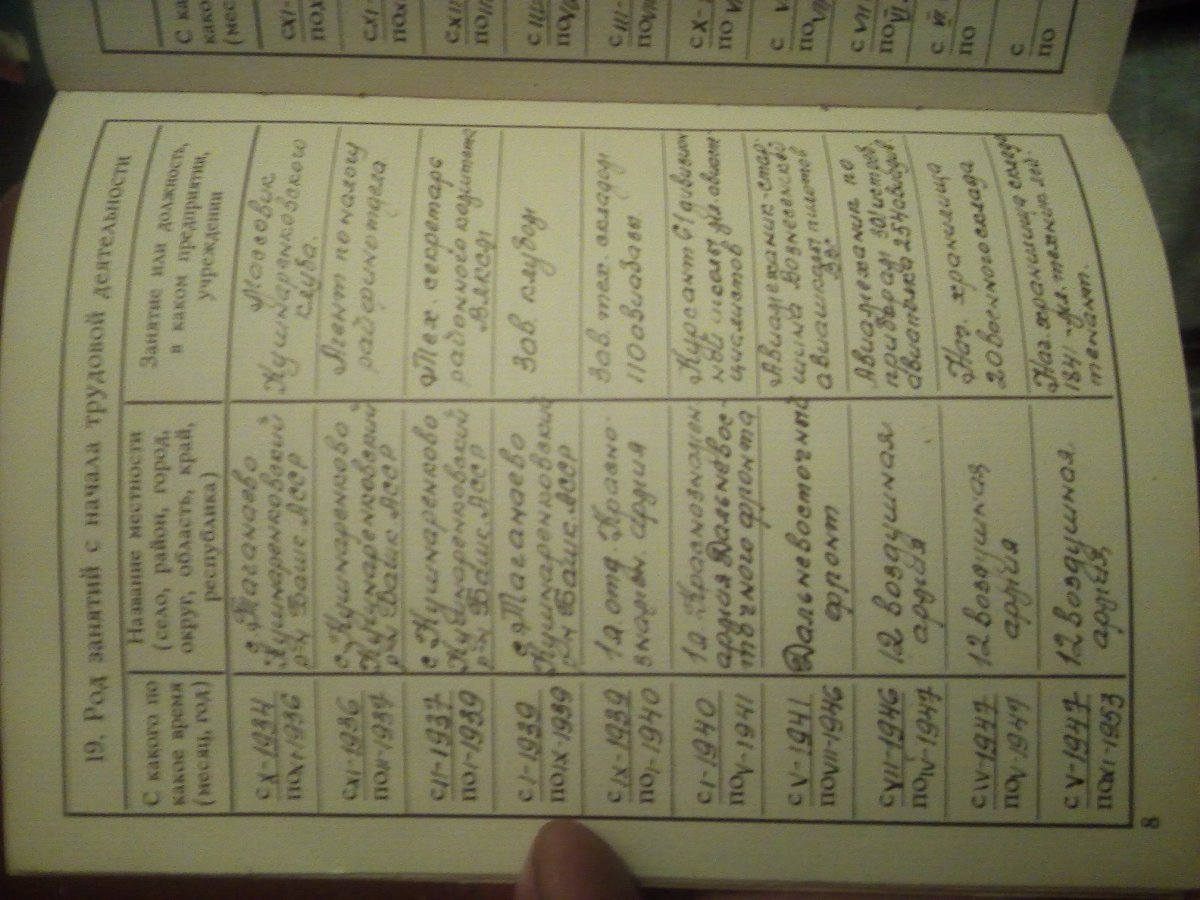 19. Род занятий с начала трудовой деятельности
С какого по
какое время
(месяц, год)
Название местности
(село, район, город,
округ, область, край,
республика)
Занятие или должность,
в каком предприятии,
учреждении
с X-1934
по XI-1936
д. Таганаево
Кушнаренковский
р-н Башк. АССР
Массовик
Кушнаренковского
клуба.
с XI-1936
по II-1937
с. Кушнаренково
Кушнаренковский
р-н Башк АССР
Агент по налогу
райфинотдела
с II-1937
по I-1939
с. Кушнаренково
Кушнаренковский
р-н Башк. АССР
Тех. секретарь
районного комитета
ВЛКСМ
с I-1939
по IX-1939
д. Таганаево
Кушнаренковский
р-н Башк. АССР
Зав. клубом
с IX-1939
по I-1940
1а отд. Красно-
знамен. армия
Зав. тех. складом
110 авиабазы
с I-1940
по V-1941
1а Краснознамен.
армия Дальневос-
точного фронта
Курсант 61 авиацион
школы мл. авиаспе
циалистов
с V-1941
по VII-1946
Дальневосточный
фронт
Авиамеханик-стар-
шина Вознесенской
авиашколы пилотов
ВВС
с VII-1946
по IV-1947
12 воздушная
армия
Авиамеханик по
приборам 301 истреб.
авиаполка 254 авиадив
с IV-1947
по V-1947
12 воздушная
армия
Нач. хранилища
20 военного склада
с V-1947
по XI-1953
12 воздушная
армия
Нач. хранилища склада
1841 - мл. техник лей-
тенант.
8
с
по
с
по